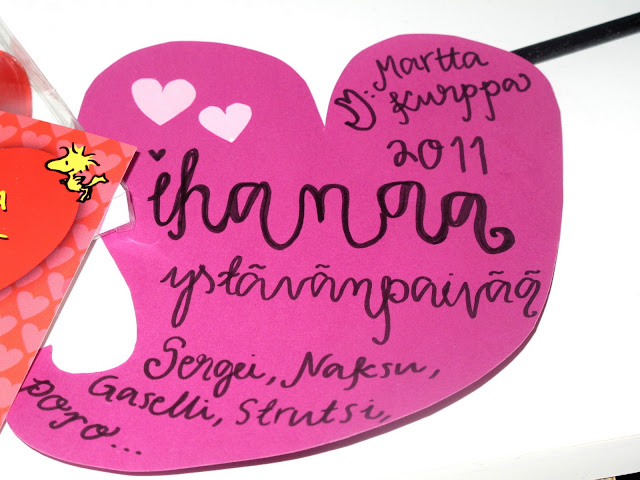 ♡: Martta
Kurppa
2011
ihanaa
ystävänpäivää
Sergei, Naksu,
Gaselli, Strutsi,
poro...